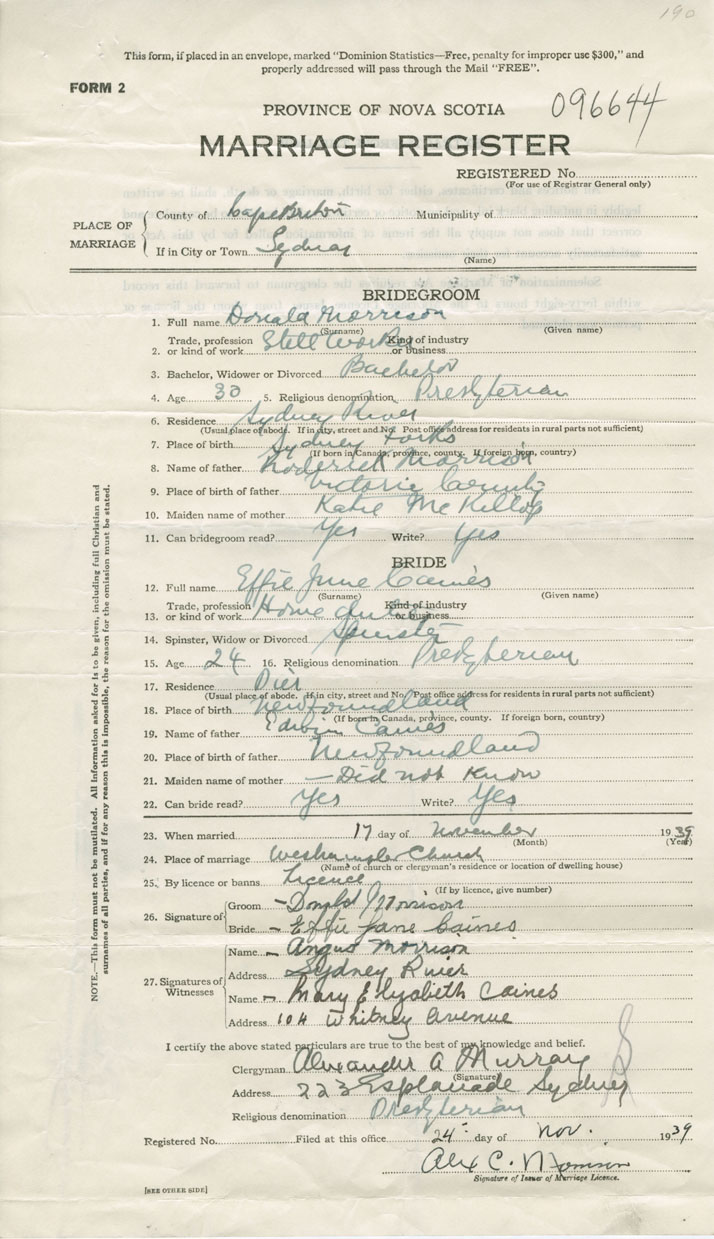 190
This form, if placed in an envelope, marked "Dominion Statistics—Free, penalty for improper use $300," and
properly addressed will pass through the Mail "FREE".
FORM 2
PROVINCE OF NOVA SCOTIA 096644
MARRIAGE REGISTER
REGISTERED No.
(For use of Registrar General only)
PLACE OF MARRIAGE
County of Cape Breton Municipality of
If in City or Town Sydney
(Name)
BRIDEGROOM
1. Full name Donald Morrison
(Surname) (Given name)
2. Trade, profession or kind of work Steel Worker Kind of industry or business
3. Bachelor, Widower or Divorced Bachelor
4. Age 30 5. Religious denomination Presbyterian
6. Residence Sydney River
(Usual place of abode. If in city, street and No. Post office address for residents in rural parts not sufficient)
7. Place of birth Sydney Forks
(If born in Canada, province, county. If foreign born, country)
8. Name of father Roderick Morrison
9. Place of birth of father Victoria County
10. Maiden name of mother Katie McKillop
11. Can bridegroom read? Yes Write? Yes
BRIDE
12. Full name Effie June Caines
(Surname) (Given name)
13. Trade, profession or kind of work Home duties Kind of industry or business
14. Spinster, Widow or Divorced Spinster
15. Age 24 16. Religious denomination Presbyterian
17. Residence Pier
(Usual place of abode. If in city, street and No. Post office address for residents in rural parts not sufficient)
18. Place of birth Newfoundland
(If born in Canada, province, county. If foreign born, country)
19. Name of father Edwin Caines
20. Place of birth of father Newfoundland
21. Maiden name of mother — Did not Know
22. Can bride read? Yes Write? Yes
23. When married 17 day of November 1939
(Month) (Year)
24. Place of marriage Church
(Name of church or clergyman's residence or location of dwelling house)
25. By licence or banns Licence
(If by licence, give number)
26. Signature of
Groom – Donald Morrison
Bride – Effie Jane Caines
27. Signatures of Witnesses
Name – Angus Morrison
Address Sydney River
Name – Mary Elizabeth Caines
Address 104 Whitney Avenue
I certify the above stated particulars are true to the best of my knowledge and belief.
Clergyman Alexander A Murray
(Signature)
Address 223 Esplanade Sydney
Religious denomination Presbyterian
Registered No. Filed at this office 24 day of Nov. 1939
Alex C. Morrison
Signature of Issuer of Marriage Licence.
[SEE OTHER SIDE]
NOTE.—This form must not be mutilated. All Information asked for is to be given, including full Christian and
surnames of all parties, and if for any reason this is impossible, the reason for the omission must be stated.